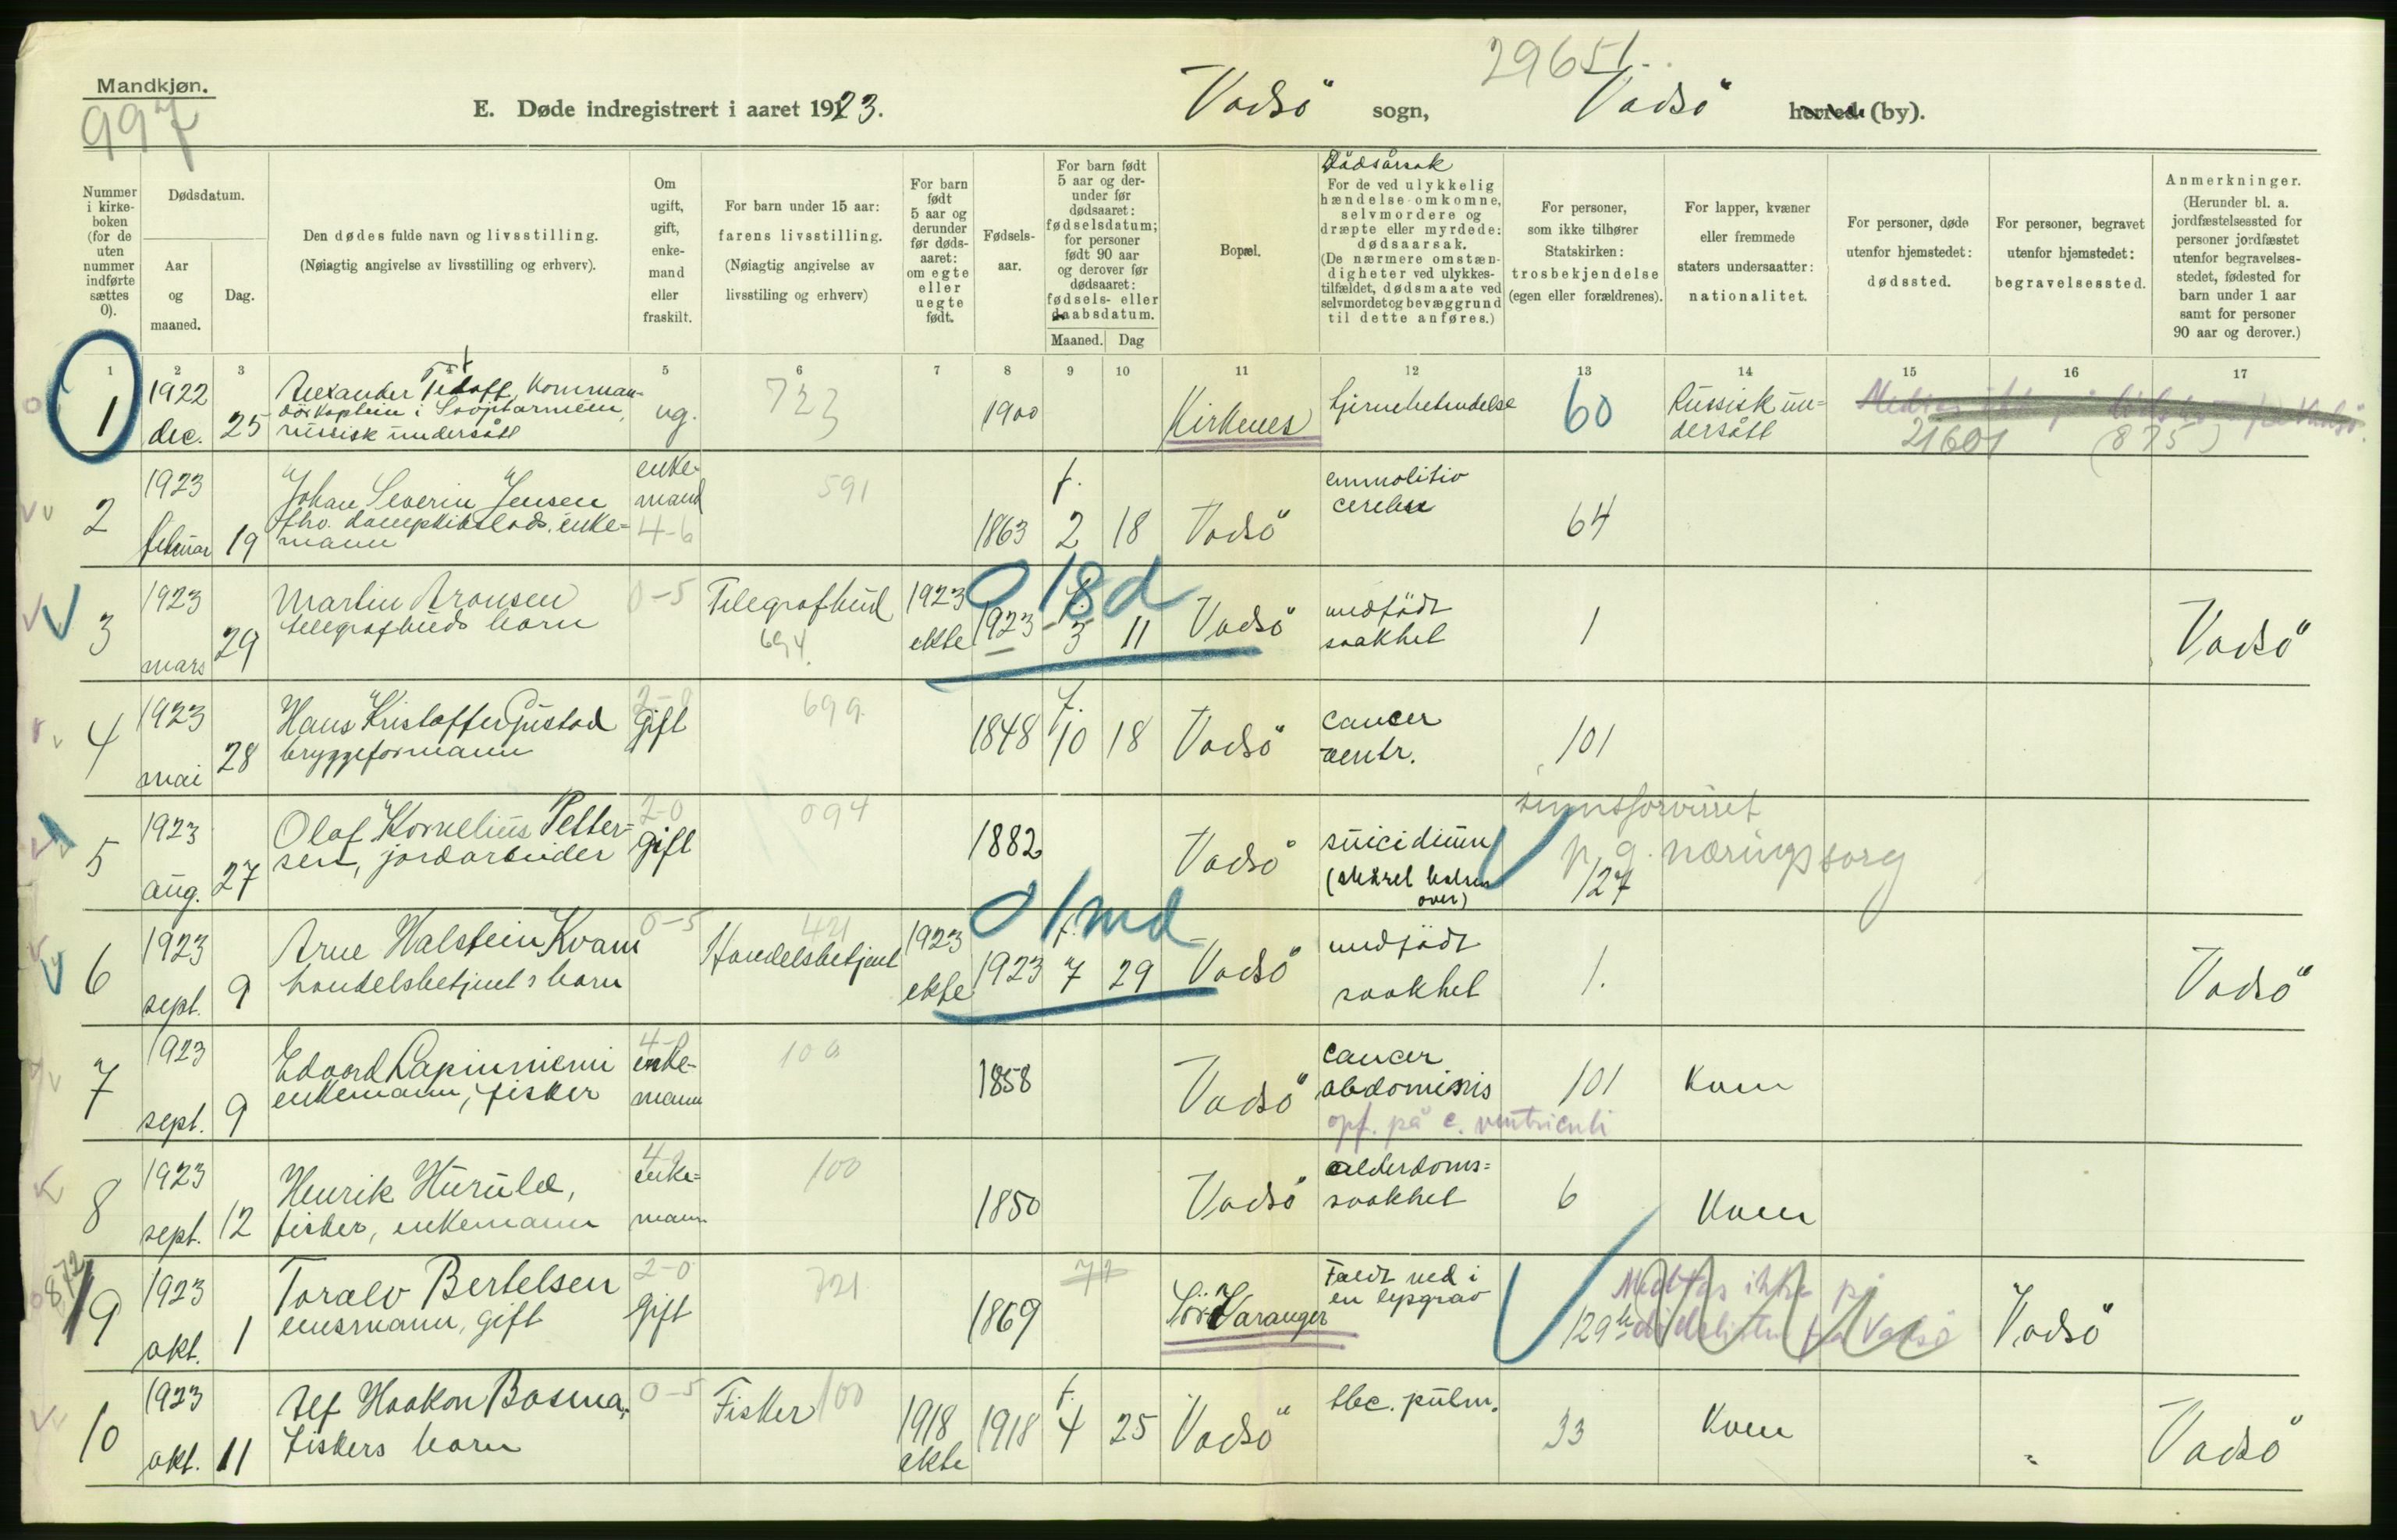 Mandkjøn.
997
29651.
E. Døde indregistrert i aaret 1923.
Vadsö sogn,
Vadsö herred (by).
Nummer i kirke-boken (for de uten nummer indførte sættes 0).
Dødsdatum.
Aar og maaned.
Dag.
Den dødes fulde navn og livsstilling.
(Nøiagtig angivelse av livsstilling og erhverv).
Om ugift, gift, enke-mand eller fraskilt.
For barn under 15 aar: farens livsstilling.
(Nøiagtig angivelse av livsstiling og erhverv)
For barn født 5 aar og derunder før døds-aaret: om egte eller uegte født.
Fødsels-aar.
For barn født 5 aar og der-under før dødsaaret: fødselsdatum; for personer født 90 aar og derover før dødsaaret: fødsels- eller daabsdatum.
Maaned.
Dag
Bopæl.
Dödsårsak
For de ved ulykkelig hændelse omkomne, selvmordere og dræpte eller myrdede: dødsaarsak.
(De nærmere omstæn-digheter ved ulykkes-tilfældet, dødsmaate ved selvmordet og bevæggrund til dette anføres.)
For personer, som ikke tilhører Statskirken: trosbekjendelse (egen eller forældrenes).
For lapper, kvæner eller fremmede staters undersaatter: nationalitet.
For personer, døde utenfor hjemstedet: dødssted.
For personer, begravet utenfor hjemstedet: begravelsessted.
Anmerkninger.
(Herunder bl. a. jordfæstelsessted for personer jordfæstet utenfor begravelses-stedet, fødested for barn under 1 aar samt for personer 90 aar og derover.)
1 2 3 5 6 7 8 9 10 11 12 13 14 15 16 17
1 1922 dec. 25 Alexander kommandörkaptein i Sovjetarmeen, russisk undersått ug. 723 1900 Kirkenes hjernebetendelse 60 Russisk undersått 21601 (875)
2 1923 februar 19 Johan Severin Jensen enkemann enkemand 4-6 591 1863 f. 2 18 Vadsö emmolitio cerebri 64
3 1923 mars 29 Martin Aronsen telegrafbuds barn 0-5 Telegrafbud 694. 1923 ekte 1923 f. 3 11 0 18 d Vadsö medfödt svakhet 1 Vadsö
4 1923 mai 28 Hans Kristoffer Gustad bryggeformann 2-0 gift 699. 1848 f. 10 18 Vadsö cancer ventr. 101
5 1923 aug. 27 Olaf Kornelius Pettersen, jordarbeider 2-0 gift 094 1882 Vadsö suicidium (skåret halsen over) sinnsforvirret p. g. næringssorg 127
6 1923 sept. 9 Arne Halstein Kvam handelsbetjents barn 0-5 Handelsbetjent 421 1923 ekte 1923 f. 7 29 0 1 md Vadsö medfödt svakhet 1. Vadsö
7 1923 sept. 9 Edvard Lapinniemi enkemann, fisker enkemann 100 1858 Vadsö cancer abdominis opf. på c. ventriculi 101 Kven
8 1923 sept. 12 Henrik Hurula, fisker, enkemann enkemann 100 1850 Vadsö alderdomssvakhet 6 Kven
872
9 1923 okt. 1 Toralv Bertelsen lensmann, gift 2-0 gift 721. 1869 77 Sör-Varanger Faldt ned i en lysgrav 129 Medtas ikke på dödslisten fra Vadsö Vadsö
10 1923 okt. 11 Alf Haakon Basma, fiskers barn 0-5 Fisker 100 1918 ekte 1918 f. 4 25 Vadsö tbc. pulm. 33 Kven Vadsö